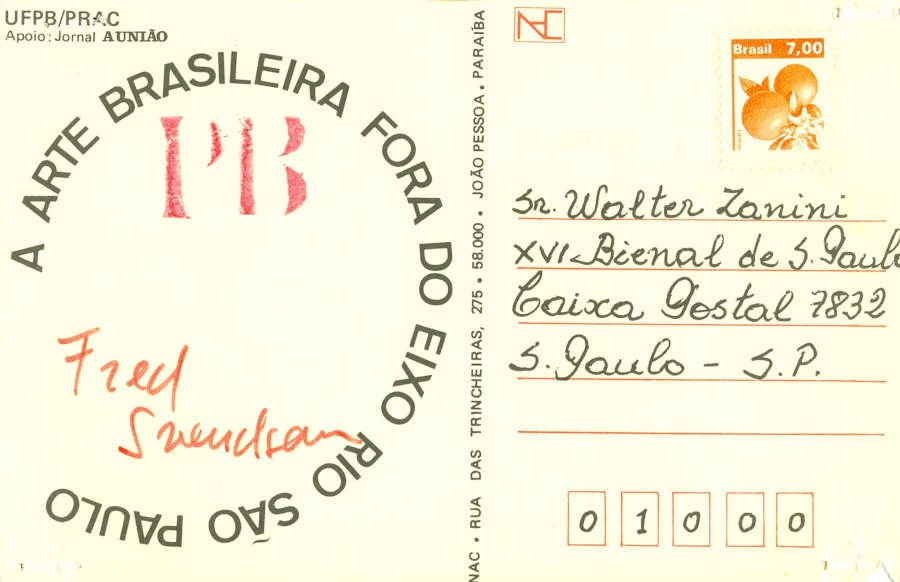 UFPB/PRAC
Apoio: Jornal A UNIÃO
A ARTE BRASILEIRA FORA DO EIXO RIO SÃO PAULO
PB
Fred
Svendsen
NAC • RUA DAS TRINCHEIRAS, 275 • 58.000 • JOÃO PESSOA, PARAÍBA
NAC
Brasil 7,00
Sr. Walter Zanini
XVI-Bienal de S. Paulo
Caixa Postal 7832
S. Paulo - S.P.
0 1 0 0 0